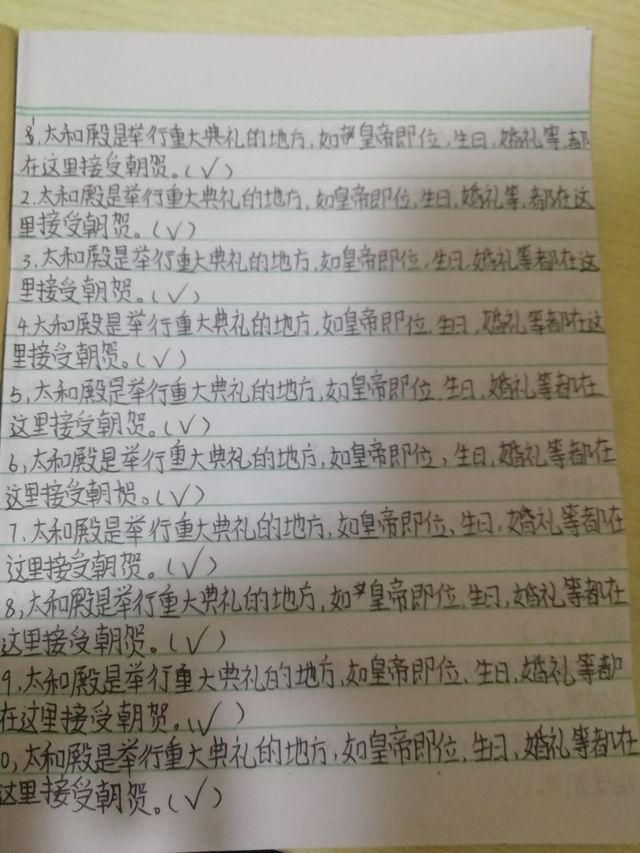 1.太和殿是举行重大典礼的地方,如皇帝即位,生日,婚礼等,都
在这里接受朝贺。(√)
2.太和殿是举行重大典礼的地方,如皇帝即位,生日,婚礼等,都在这
里接受朝贺。(√)
3.太和殿是举行重大典礼的地方,如皇帝即位,生日,婚礼等都在这
里接受朝贺。(√)
4.太和殿是举行重大典礼的地方,如皇帝即位,生日,婚礼等都在这
里接受朝贺。(√)
5,太和殿是举行重大典礼的地方,如皇帝即位,生日,婚礼等都在
这里接受朝贺。(√)
6,太和殿是举行重大典礼的地方,如皇帝即位,生日,婚礼等都在
这里接受朝贺。(√)
7,太和殿是举行重大典礼的地方,如皇帝即位、生日,婚礼等都在
这里接受朝贺。(√)
8,太和殿是举行重大典礼的地方,如皇帝即位,生日,婚礼等都在
这里接受朝贺。(√)
9.太和殿是举行重大典礼的地方,如皇帝即位、生日,婚礼等都
在这里接受朝贺。(√)
0,太和殿是举行重大典礼的地方,如皇帝即位,生日,婚礼等都在
这里接受朝贺。(√)